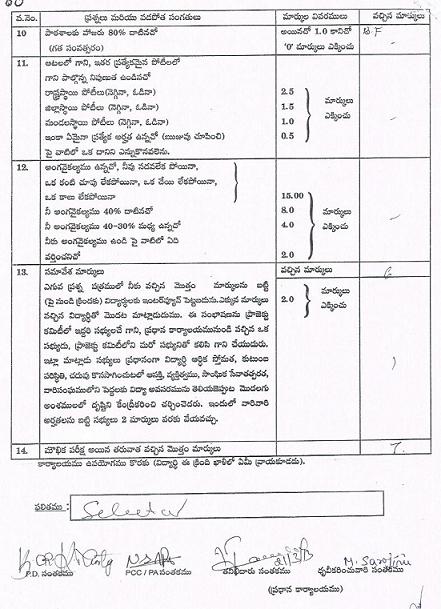 వ.నెం. ప్రశ్నలు మరియు వడపోత సంగతులు మార్కుల వివరములు వచ్చిన మార్కులు
10 పాఠశాలకు హాజరు 80% దాటినచో అయినచో 1.0 కానిచో
(గత సంవత్సరం) '0' మార్కులు ఎక్కించు
11. ఆటలలో గాని, ఇతర ప్రత్యేకమైన పోటీలలో
గాని పాల్గొన్న నిపుణుత ఉండినచో
రాష్ట్రస్థాయి పోటీలు (నెగ్గినా, ఓడినా) 2.5
జిల్లాస్థాయి పోటీలు (నెగ్గినా, ఓడినా) 1.5 మార్కులు
మండలస్థాయి పోటీలు (నెగ్గినా, ఓడినా) 1.0 ఎక్కించు
ఇంకా ఏమైనా ప్రత్యేక అర్హత ఉన్నచో (ఋజువు చూపించి) 0.5
పై వాటిలో ఒక దానిని ఎన్నుకొనవలెను.
12. అంగవైకల్యము ఉన్నచో, నీవు నడవలేక పోయినా,
ఒక కంటి చూపు లేకపోయినా, ఒక చేయి లేకపోయినా,
ఒక కాలు లేకపోయినా 15.00
నీ అంగవైకల్యము 40% దాటినచో 8.0 మార్కులు
నీ అంగవైకల్యము 40-30% మధ్య ఉన్నచో 4.0 ఎక్కించు
నీకు అంగవైకల్యము ఉండి పై వాటిలో ఏది
వర్తించనిచో 2.0
13. సమావేశ మార్కులు వచ్చిన మార్కులు 6
ఎగువ ప్రశ్న పత్రములో నీకు వచ్చిన మొత్తం మార్కులను బట్టి
(పై నుండి క్రిందకు) విద్యార్థులకు ఇంటర్వ్యూన్ పెట్టబడును. ఎక్కువ మార్కులు 2.0 మార్కులు
వచ్చిన విద్యార్థితో మొదట మాట్లాడుదుము. ఈ సంభాషణను ప్రాజెక్టు ఎక్కించు
కమిటీలో ఇద్దరి సభ్యులచే గాని, ప్రధాన కార్యాలయమునుండి వచ్చిన ఒక
సభ్యుడు, ప్రాజెక్టు కమిటీలోని మరో సభ్యునితో కలిసి గాని చేయుదురు.
ఇట్లా మాట్లాడు సభ్యులు ప్రధానంగా విద్యార్థి ఆర్థిక స్తోమత, కుటుంబ
పరిస్థితి, చదువు కొనసాగించుటలో ఆసక్తి, వ్యక్తిత్వము, సాంఘిక సేవాతత్పరత,
దారిసంఘములోని పెద్దలకు విద్యా అవసరమును తెలియజెప్పుట మొదలగు
అంశములలో దృష్టిని కేంద్రీకరించి చర్చించెదరు. ఇందులో వారివారి
అర్హతలను బట్టి సభ్యులు 2 మార్కుల వరకు వేయవచ్చు.
14. మౌఖిక పరీక్ష అయిన తరువాత వచ్చిన మొత్తం మార్కులు 7.
కార్యాలయము ఉపయోగము కొరకు (విద్యార్థి ఈ క్రింది ఖాళీలో ఏమీ వ్రాయకూడదు).
ఫలితము : Selected
21/3/13 M. Sarojini
P.D. సంతకము PCC / PA సంతకము తనిఖీదారు సంతకము ధృవీకరించువారి సంతకము
(ప్రధాన కార్యాలయము)